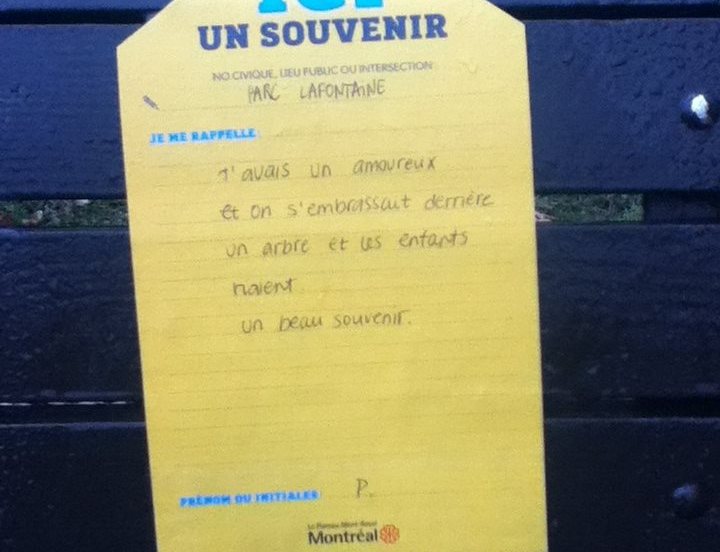 ICI
UN SOUVENIR
NO CIVIQUE, LIEU PUBLIC OU INTERSECTION
PARC LAFONTAINE
JE ME RAPPELLE
J'avais un amoureux
et on s'embrassait derrière
un arbre et les enfants
riaient.
un beau souvenir.
PRÉNOM OU INITIALES
P.
Le Plateau-Mont-Royal
Montréal